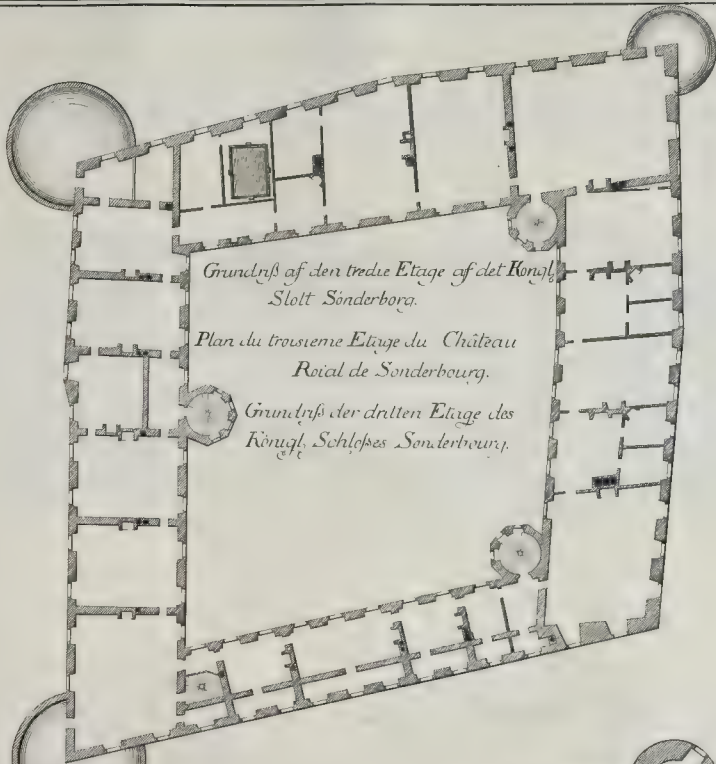 Grundriß af den tredie Etage af det Kongl,
Slott Sönderborg.
Plan du troisieme Etage du Château
Roial de Sonderbourg.
Grundriß der dritten Etage des
Königl, Schloßes Sonderbourg.